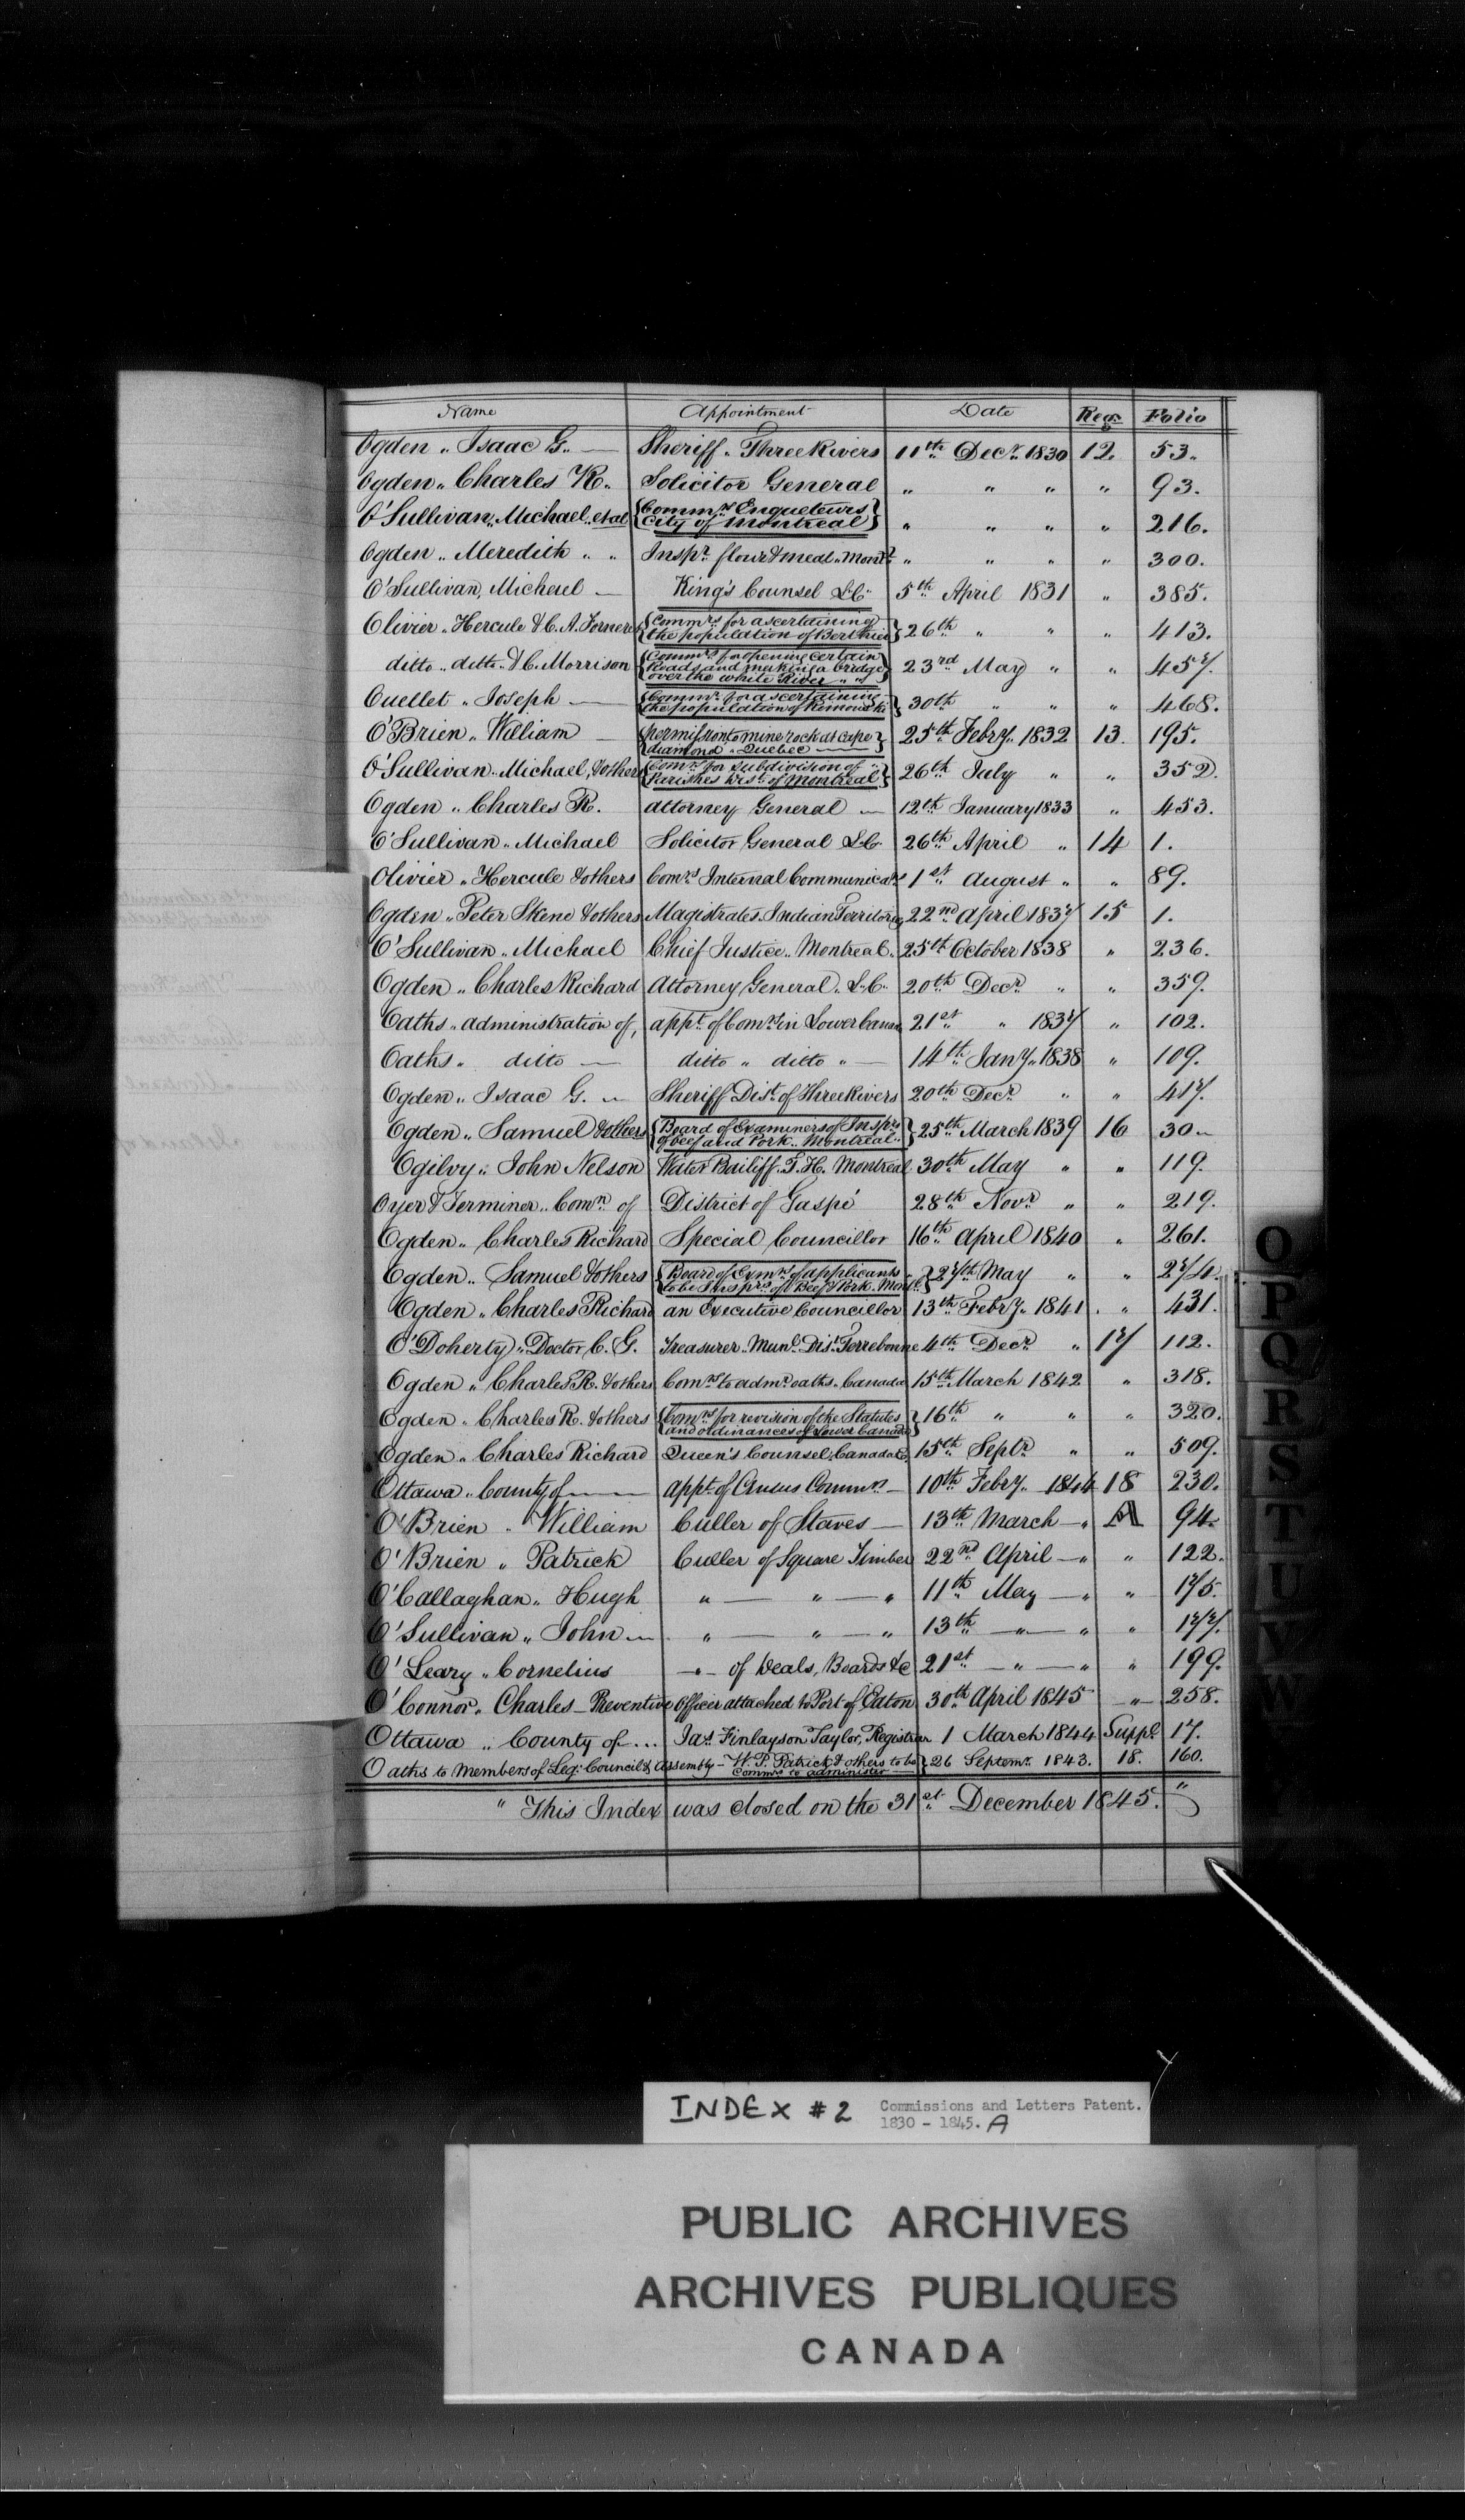 Name Appointment Date Regr. Folio
Ogden „ Isaac G. — Sheriff „ Three Rivers 11th Decr. 1830 12. 53.
Ogden „ Charles R. Solicitor General „ „ „ „ 93.
O'Sullivan, Michael, et al { Commrs Enqueteurs City of Montreal } „ „ „ „ 216.
Ogden „ Meredith „ „ Inspr. flour & meal „ Montl. „ „ „ „ 300.
O'Sullivan, Michael — King's Counsel L.C. 5th April 1831 „ 385.
Olivier „ Hercule & C. A. Forneret { Commrs for ascertaining the population of Berthier } 26th „ „ „ 413.
ditto „ ditto „ & C. Morrison { Commrs for opening certain Roads and making a bridge over the white River „ „ } 23rd May „ „ 457.
Ouellet „ Joseph — { Commr. for ascertaining the population of Rimouski } 30th „ „ „ 468.
O'Brien „ William — { permission to mine rock at cape diamond „ Quebec — } 25th Febry. 1832 13. 195.
O'Sullivan „ Michael, & others { Comrs for subdivision of „ Parishes Dist. of Montreal } 26th July „ „ 352.
Ogden „ Charles R. attorney General — 12th January 1833 „ 453.
O'Sullivan „ Michael Solicitor General L.C. 26th April „ 14 1.
Olivier „ Hercule & others Comrs Internal Communicatns 1st August „ „ 89.
Ogden „ Peter Skene & others Magistrates. Indian Territories 22nd April 1837 15 1.
O'Sullivan „ Michael Chief Justice „ Montreal „ 25th October 1838 „ 236.
Ogden „ Charles Richard Attorney General „ L.C. 20th Decr. „ „ 359.
Oaths „ administration of, appt. of Comrs in Lower Canada 21st „ 1837 „ 102.
Oaths „ ditto — ditto „ ditto „ — 14th Jany. 1838 „ 109.
Ogden „ Isaac G. „ Sheriff Dist. of Three Rivers 20th Decr. „ „ 417.
Ogden „ Samuel & others { Board of Examiners of Insprs of beef and Pork „ Montreal „ } 25th March 1839 16 30.
Ogilvy „ John Nelson Water Bailiff. T. H. Montreal 30th May „ „ 119.
Oyer & Terminer „ Comn. of District of Gaspé 28th Novr. „ „ 219.
Ogden „ Charles Richard Special Councillor 16th April 1840 „ 261.
Ogden „ Samuel & others { Board of Exmrs of applicants to be Insprs of Beef & Pork. Montl. } 27th May „ „ 274.
Ogden „ Charles Richard an Executive Councillor 13th Febry. 1841 . „ 431.
O'Doherty „ Doctor C. G. Treasurer „ Munl. Dist. Terrebonne 4th Decr. „ 17 112.
Ogden „ Charles R. & others Comrs to admr. oaths „ Canada 15th March 1842 „ 318.
Ogden „ Charles R. & others { Comrs for revision of the Statutes and ordinances of Lower Canada } 16th „ „ „ 320.
Ogden „ Charles Richard Queen's Counsel, Canada 15th Septr. „ „ 509.
Ottawa „ County of — appt. of Census Commrs — 10th Febry. 1844 18 230.
O'Brien „ William Culler of Staves — 13th March — „ A 94.
O'Brien „ Patrick Culler of Square Timber 22nd April — „ „ 122.
O'Callaghan „ Hugh „ — „ — „ 11th May — „ „ 175.
O'Sullivan „ John — „ — „ — „ 13th — „ — „ „ 177.
O'Leary „ Cornelius — „ — of Deals, Boards &c 21st — „ — „ „ 199.
O'Connor „ Charles — Preventive Officer attached to Port of Eaton 30th April 1845 — „ — 258.
Ottawa „ County of ... Jas. Finlayson Taylor, Registrar 1 March 1844 Suppl. 17.
Oaths to Members of Leg. Council & Assembly — W. P. Patrick & others to be Commrs to administer — } 26 Septemr. 1843. 18. 160.
" This Index was closed on the 31st December 1845. "
O
P
Q
R
S
T
U
V
W
INDEX # 2 Commissions and Letters Patent.
1830 - 1845. A
PUBLIC ARCHIVES
ARCHIVES PUBLIQUES
CANADA